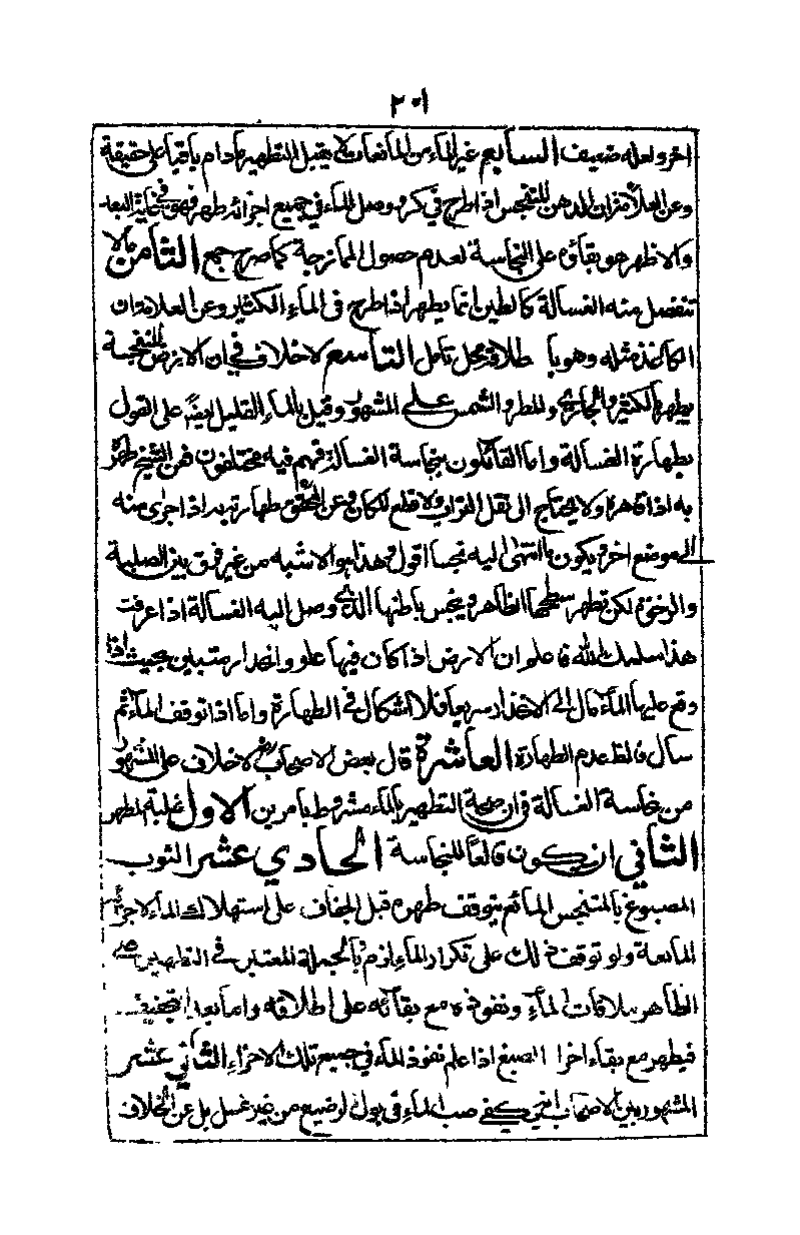 ٢٠١
اخر ولعله ضعيف السابع غير الماء من المائعات لا يقبل التطهير مادام باقيا على حقيقة
وعن العلامة ان الدهن المتنجس اذا طرح في كر ووصل الماء في جميع اجزائه طهر فهو في غاية البعد
والاظهر هو بقائه على النجاسة لعدم حصول الممازجة كما صرح جمع الثامن ما لا
تنفصل منه الغسالة كالطين انما يطهر اذا طرح في الماء الكثير وعن العلامة ان
الكاغذ مثله وهو باطلاقه محل تامل التاسع لا خلاف في ان الارض المتنجسة
يطهر بالكثير والجاري والمطر والشمس على المشهور وقيل بالماء القليل ايضا على القول
بطهارة الغسالة واما القائلون بنجاسة الغسالة فهم فيه مختلفون فعن الشيخ طهرت
به اذا قاهره ولا يحتاج الى نقل التراب ولا قطع المكان وعن المحقق طهارته به اذا جرى منه
الى موضع اخر ويكون ما انتهى اليه نجسا اقول وهذا هو الاشبه من غير فرق بين الصلبة
والرخوة لكن تطهر سطحها الظاهر وينجس باطنها الذي وصل اليه الغسالة اذا عرفت
هذا سلمك الله فاعلم ان الارض اذا كان فيها علو وانحدار متبين بحيث اذا
وقع عليها الماء مال الى الانحدار سريعا فلا اشكال في الطهارة واما اذا توقف الماء ثم
سال فالظ عدم الطهارة العاشرة قال بعض الاصحاب لا خلاف على المشهور
من نجاسة الغسالة في ان صحة التطهير بالماء مشروط بامرين الاول غلبة المطهر
الثاني ان يكون قالعا للنجاسة الحادي عشر الثوب
المصبوغ بالمتنجس المائع يتوقف طهره قبل الجفاف على استهلاك الماء لاجزائه
المائعة ولو توقف ذلك على تكرار الماء لزم بالجملة المعتبر في التطهير
الظاهر ملاقات الماء ونفوذه مع بقائه على اطلاقه واما بعد التجفيف
فيطهر مع بقاء اجزا الصبغ اذا علم نفوذ الماء في جميع تلك الاجزاء الثاني عشر
المشهور بين الاصحاب انه يكفي صب الماء في بول الرضيع من غير غسل بل عن الخلاف